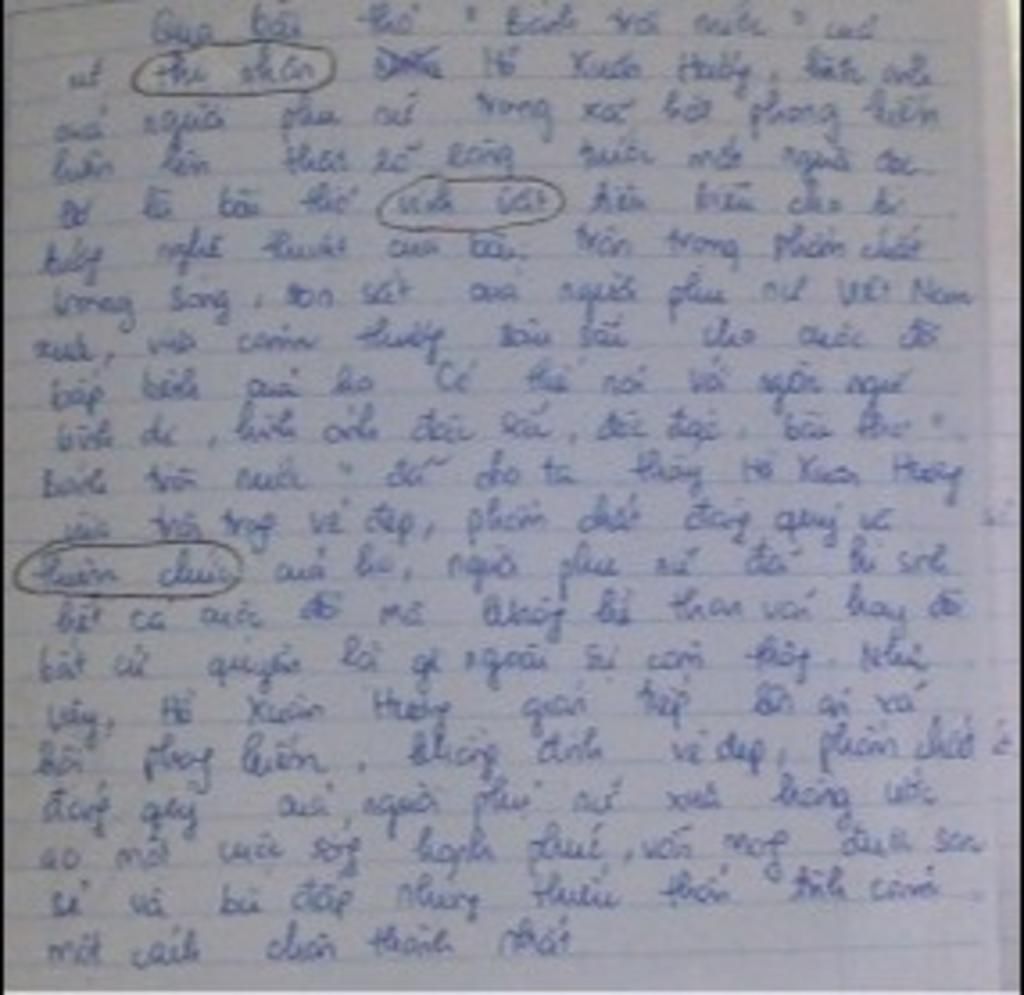 Qua bài thơ " Bánh trôi nước " của
nữ thi nhân Hồ Xuân Hương, hình ảnh
của người phụ nữ trong xã hội phong kiến
luôn lên trước mắt người đọc.
là bài thơ vịnh vật tiêu biểu cho
nghệ thuật của bà. trân trọng phẩm chất
trong trắng, son sắt của người phụ nữ Việt Nam
xưa, vừa cảm thương sâu sắc cho cuộc đời
bấp bênh của họ Có thể nói với ngôn ngữ
bình dị, hình ảnh đặc sắc, độc đáo, bài thơ "
Bánh trôi nước " đã cho ta thấy Hồ Xuân Hương
vừa trân trọng vẻ đẹp, phẩm chất đáng quý và
thiên chức của họ, người phụ nữ đã hi sinh
hết cả cuộc đời mà không hề than vãn hay đòi
bất cứ quyền lợi gì ngoài sự cảm thông. Như
vậy, Hồ Xuân Hương gián tiếp lên án xã
hội phong kiến, khẳng định vẻ đẹp, phẩm chất
đáng quý của người phụ nữ xưa không ước
ao một cuộc sống hạnh phúc, vẫn mong được san
sẻ và bù đắp những thiếu thốn tình cảm
một cách chân thành nhất